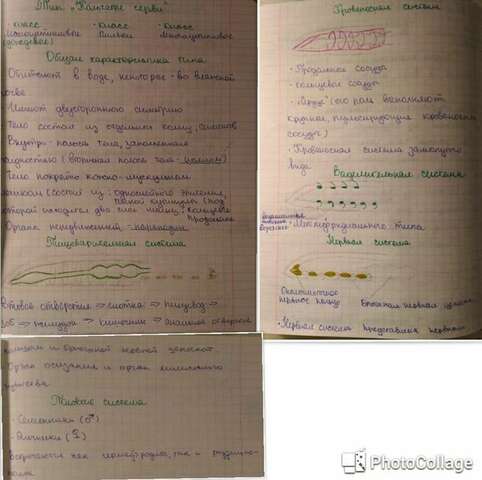 Тип "Кольчатые черви"
· класс · Класс · Класс
Малощетинковые Пиявки Многощетинковые
(дождевые)
Общая характеристика типа
Обитают в воде, некоторые - во влажной
почве
Имеют двустороннюю симметрию
Тело состоит из отдельных колец, сегментов
Внутри - полость тела, заполненная
жидкостью (вторичная полость тела - целом)
Тело покрыто кожно-мускульным
мешком (состоит из: однослойного эпителия,
тонкой кутикулы (под
которой находится два слоя мышц: кольцевые
продольные
Органы передвижения - параподии
Пищеварительная система
Ротовое отверстие => глотка => пищевод =>
зоб => желудок => кишечник => анальное отверстие
Кровеносная система
· Продольные сосуды
· кольцевые сосуды
· "сердце" (его роль выполняют
крупные, пульсирующие кровеносные
сосуды)
· Кровеносная система замкнутого
вида
Выделительная система
· Метанефридиального типа
Нервная система
Окологлоточное
нервное кольцо
Брюшная нервная цепочка
· Нервная система представлена нервным
кольцом и брюшной нервной цепочкой
Орган осязания и орган химического
чувства
Половая система
· Семенники (♂)
· Яичники (♀)
Встречаются как гермафродиты, так и раздельно-
полые
PhotoCollage